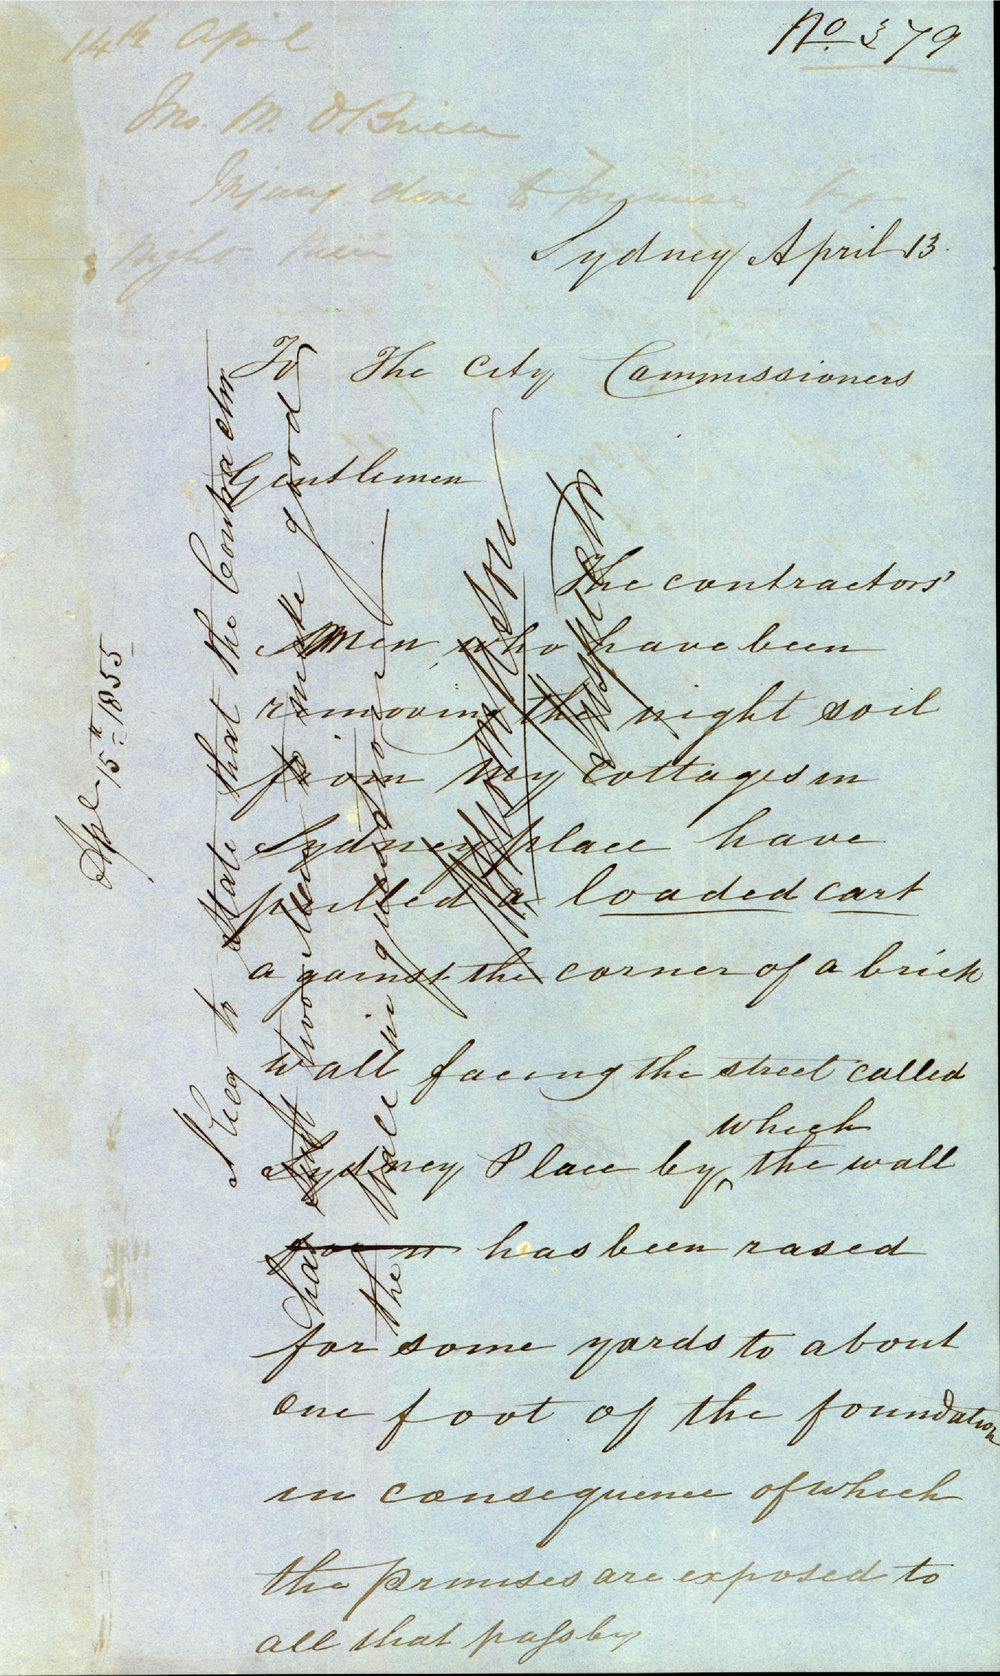 No. 379
14th April
Mrs. M. O'Brien
Injury done to premises by
Night Men
Sydney April 13.
To The City Commissioners
Gentlemen
The contractors'
Men who have been
removing the night soil
from my cottages in
Sydney place have
pulled a loaded cart
against the corner of a brick
wall facing the street called
Sydney Place by which the wall
has been rased
for some yards to about
one foot of the foundation
in consequence of which
the premises are exposed to
all that pass by
I beg to state that the Contractor
has sent two Men to make good
the Wall in question
Inspector
Apl 15th 1855